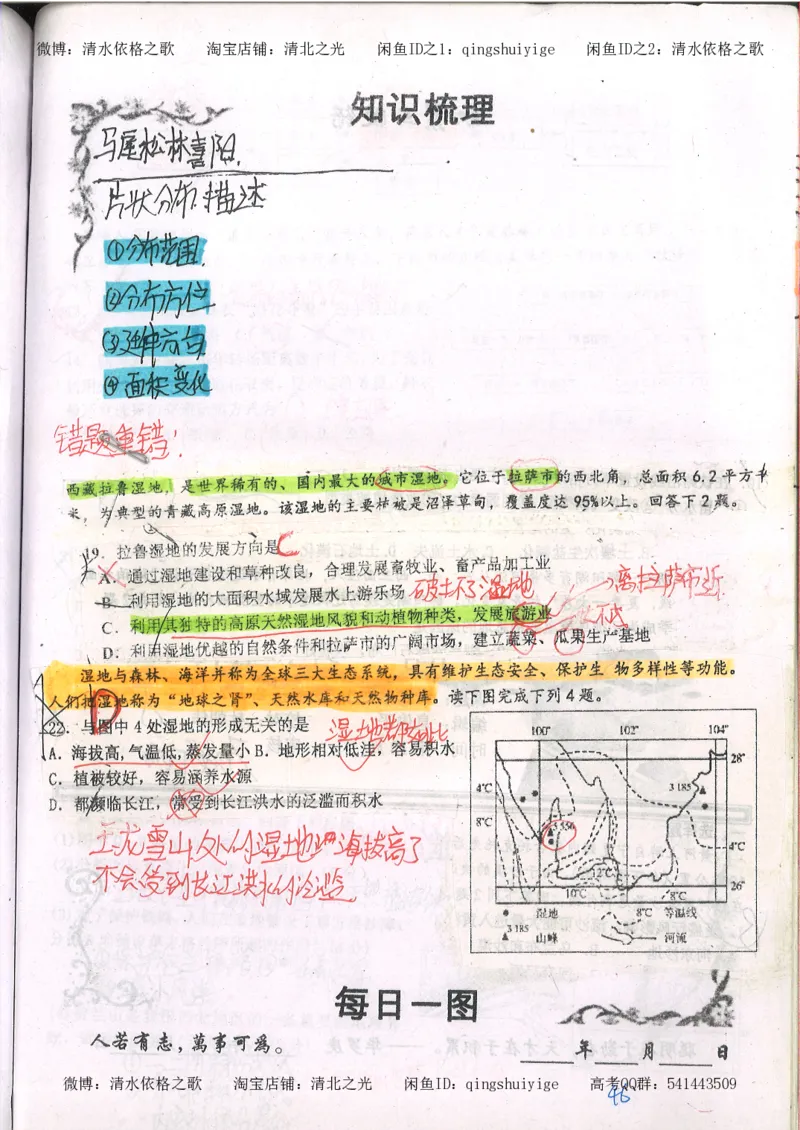 微博：清水依格之歌 淘宝店铺：清北之光 闲鱼ID之1：qingshuiyige 闲鱼ID之2：清水依格之歌
知识梳理
马尾松林喜阳.
片状分布描述
①分布范围.
②分布方位
④面积变化
错题重错！
西藏拉鲁湿地，是世界稀有的、国内最大的城市湿地。它位于拉萨市的西北角，总面积 6.2 平方千
米，为典型的青藏高原湿地。该湿地的主要植被是沼泽草甸，覆盖度达 95%以上。回答下 2 题。
19．拉鲁湿地的发展方向是 C
A．通过湿地建设和草种改良，合理发展畜牧业、畜产品加工业
B．利用湿地的大面积水域发展水上游乐场 破坏了湿地
离拉萨市近
C．利用其独特的高原天然湿地风貌和动植物种类，发展旅游业
D．利用湿地优越的自然条件和拉萨市的广阔市场，建立蔬菜、瓜果生产基地
湿地与森林、海洋并称为全球三大生态系统，具有维护生态安全、保护生 物多样性等功能。
人们把湿地称为“地球之肾”、天然水库和天然物种库。读下图完成下列 4 题。
D
22．与图中 4 处湿地的形成无关的是 湿地都如此
A．海拔高,气温低,蒸发量小 B．地形相对低洼，容易积水
C．植被较好，容易涵养水源
D．都濒临长江，常受到长江洪水的泛滥而积水
玉龙雪山处的湿地海拔高了
不会受到长江洪水的泛滥
100° 102° 104°
28°
3 185
4℃
8℃
4℃
12℃
26°
10℃ 8℃
湿地 8℃ 等温线
3 185 山峰 河流
每日一图
人若有志，萬事可為。
年 月 日
微博：清水依格之歌 淘宝店铺：清北之光 闲鱼ID：qingshuiyige 高考QQ群：541443509
46